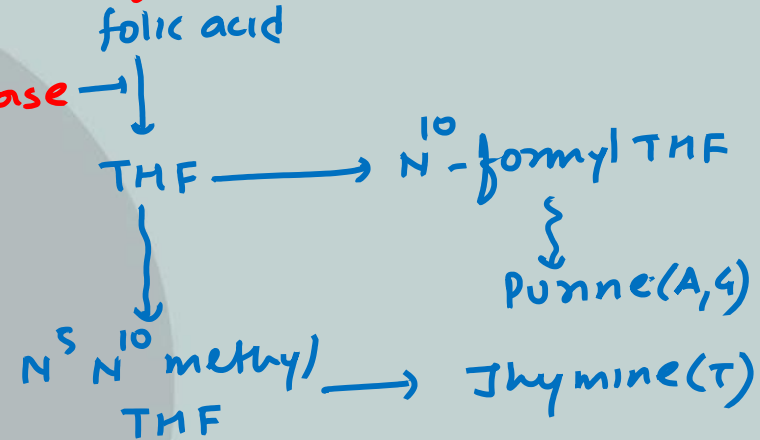 folic acid
ase
THF N10-formyl THF
Purine (A,G)
N5 N10 methyl Thymine (T)
THF